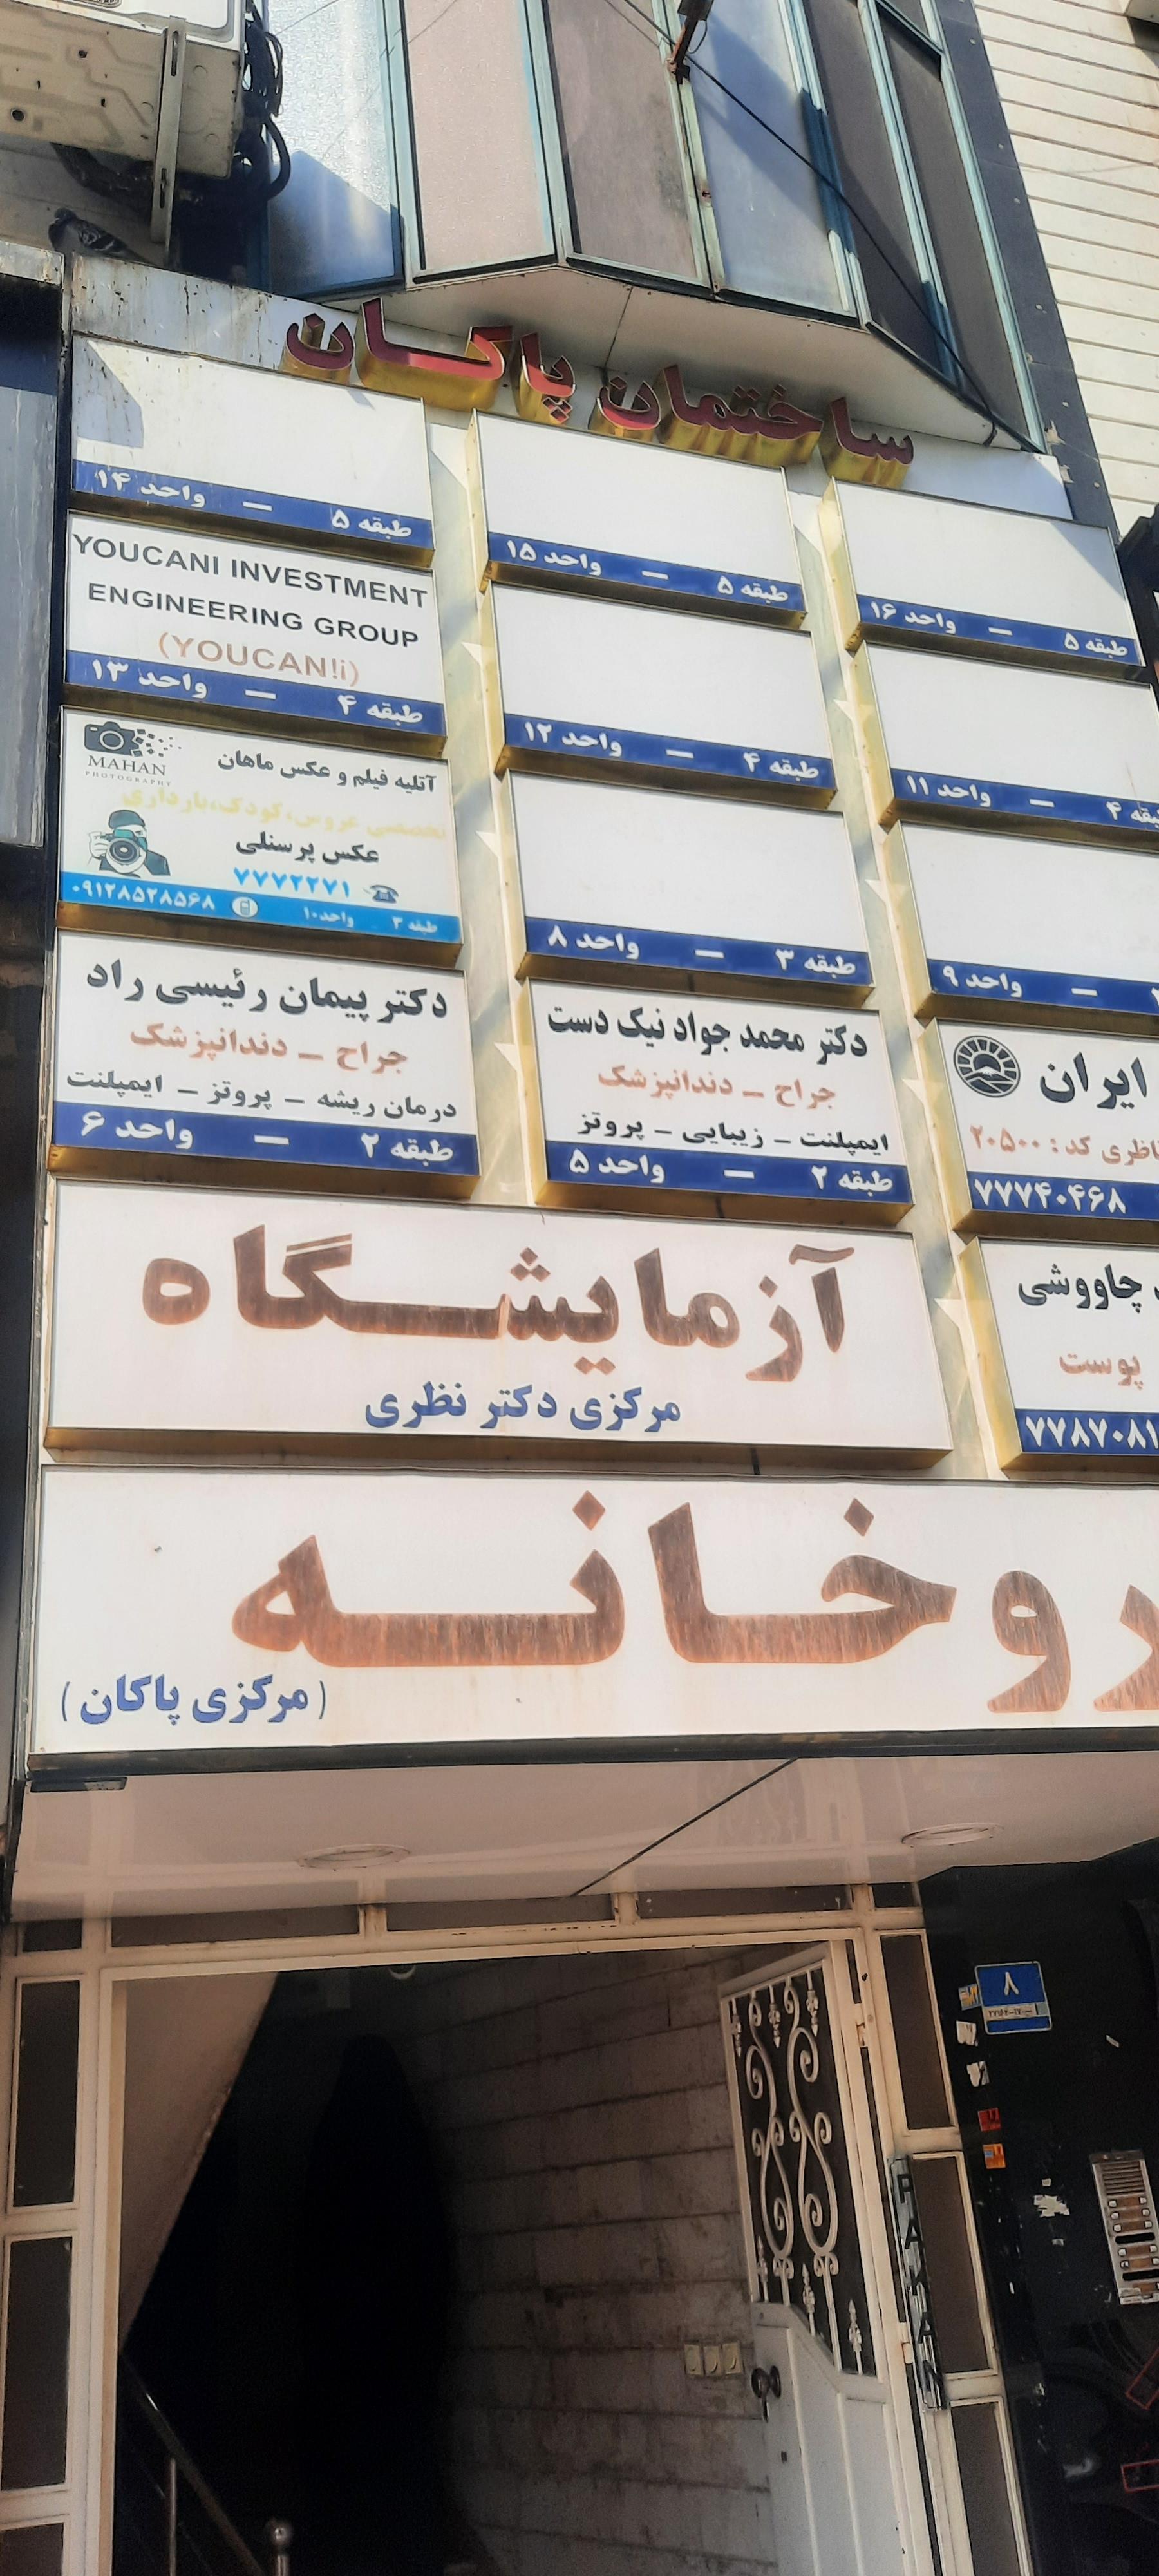 ساختمان پاکان
طبقه ۵ — واحد ۱۶
طبقه ۵ — واحد ۱۵
طبقه ۵ — واحد ۱۴
طبقه ۴ — واحد ۱۱
طبقه ۴ — واحد ۱۲
YOUCANI INVESTMENT
ENGINEERING GROUP
(YOUCAN!i)
طبقه ۴ — واحد ۱۳
— واحد ۹
طبقه ۳ — واحد ۸
آتلیه فیلم و عکس ماهان
MAHAN
PHOTOGRAPHY
تخصصی عروس،کودک،بارداری
عکس پرسنلی
۷۷۷۲۲۷۱
طبقه ۳ واحد۱۰ ۰۹۱۲۸۵۲۸۵۶۸
ایران
کد : ۲۰۵۰۰
۷۷۷۴۰۴۶۸
دکتر محمد جواد نیک دست
جراح – دندانپزشک
ایمپلنت – زیبایی – پروتز
طبقه ۲ — واحد ۵
دکتر پیمان رئیسی راد
جراح – دندانپزشک
درمان ریشه – پروتز – ایمپلنت
طبقه ۲ — واحد ۶
چاووشی
پوست
۷۷۸۷۰۸۱
آزمایشگاه
مرکزی دکتر نظری
روخانه
(مرکزی پاکان)
۸
PAKAN